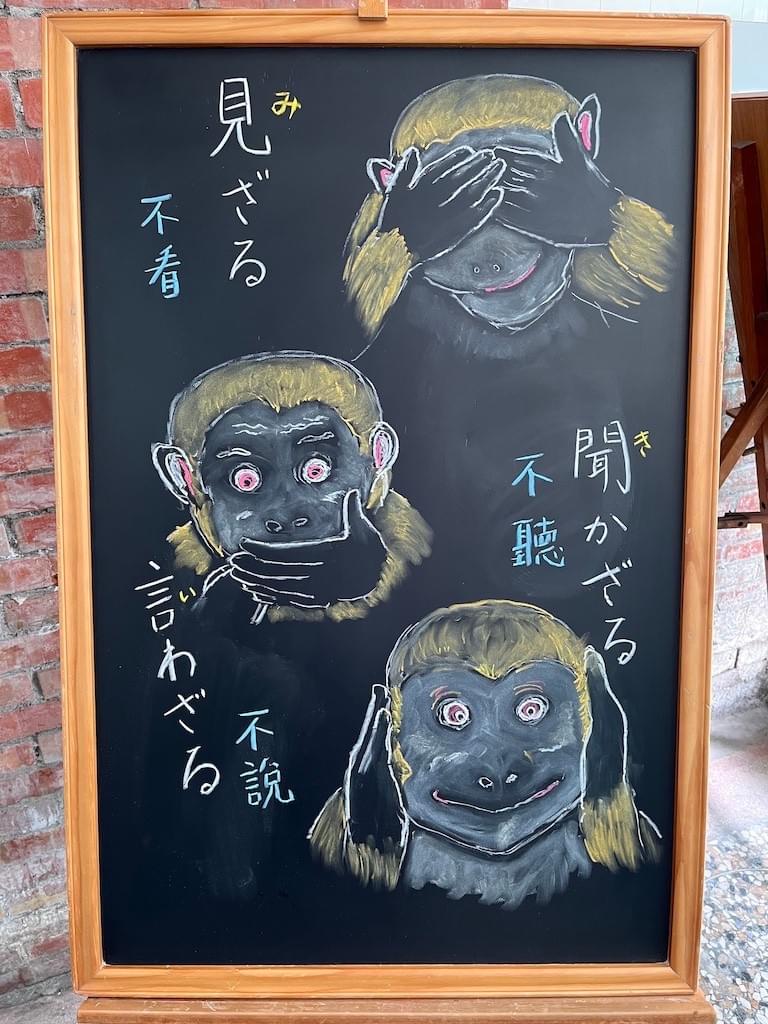 見ざる
み
不看
聞かざる
き
不聽
言わざる
い
不說